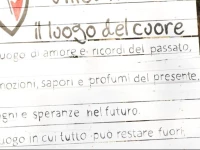 il luogo del cuore
uogo di amore e ricordi del passato,
mozioni, sapori e profumi del presente,
egni e speranze nel futuro.
uogo in cui tutto può restare fuori,